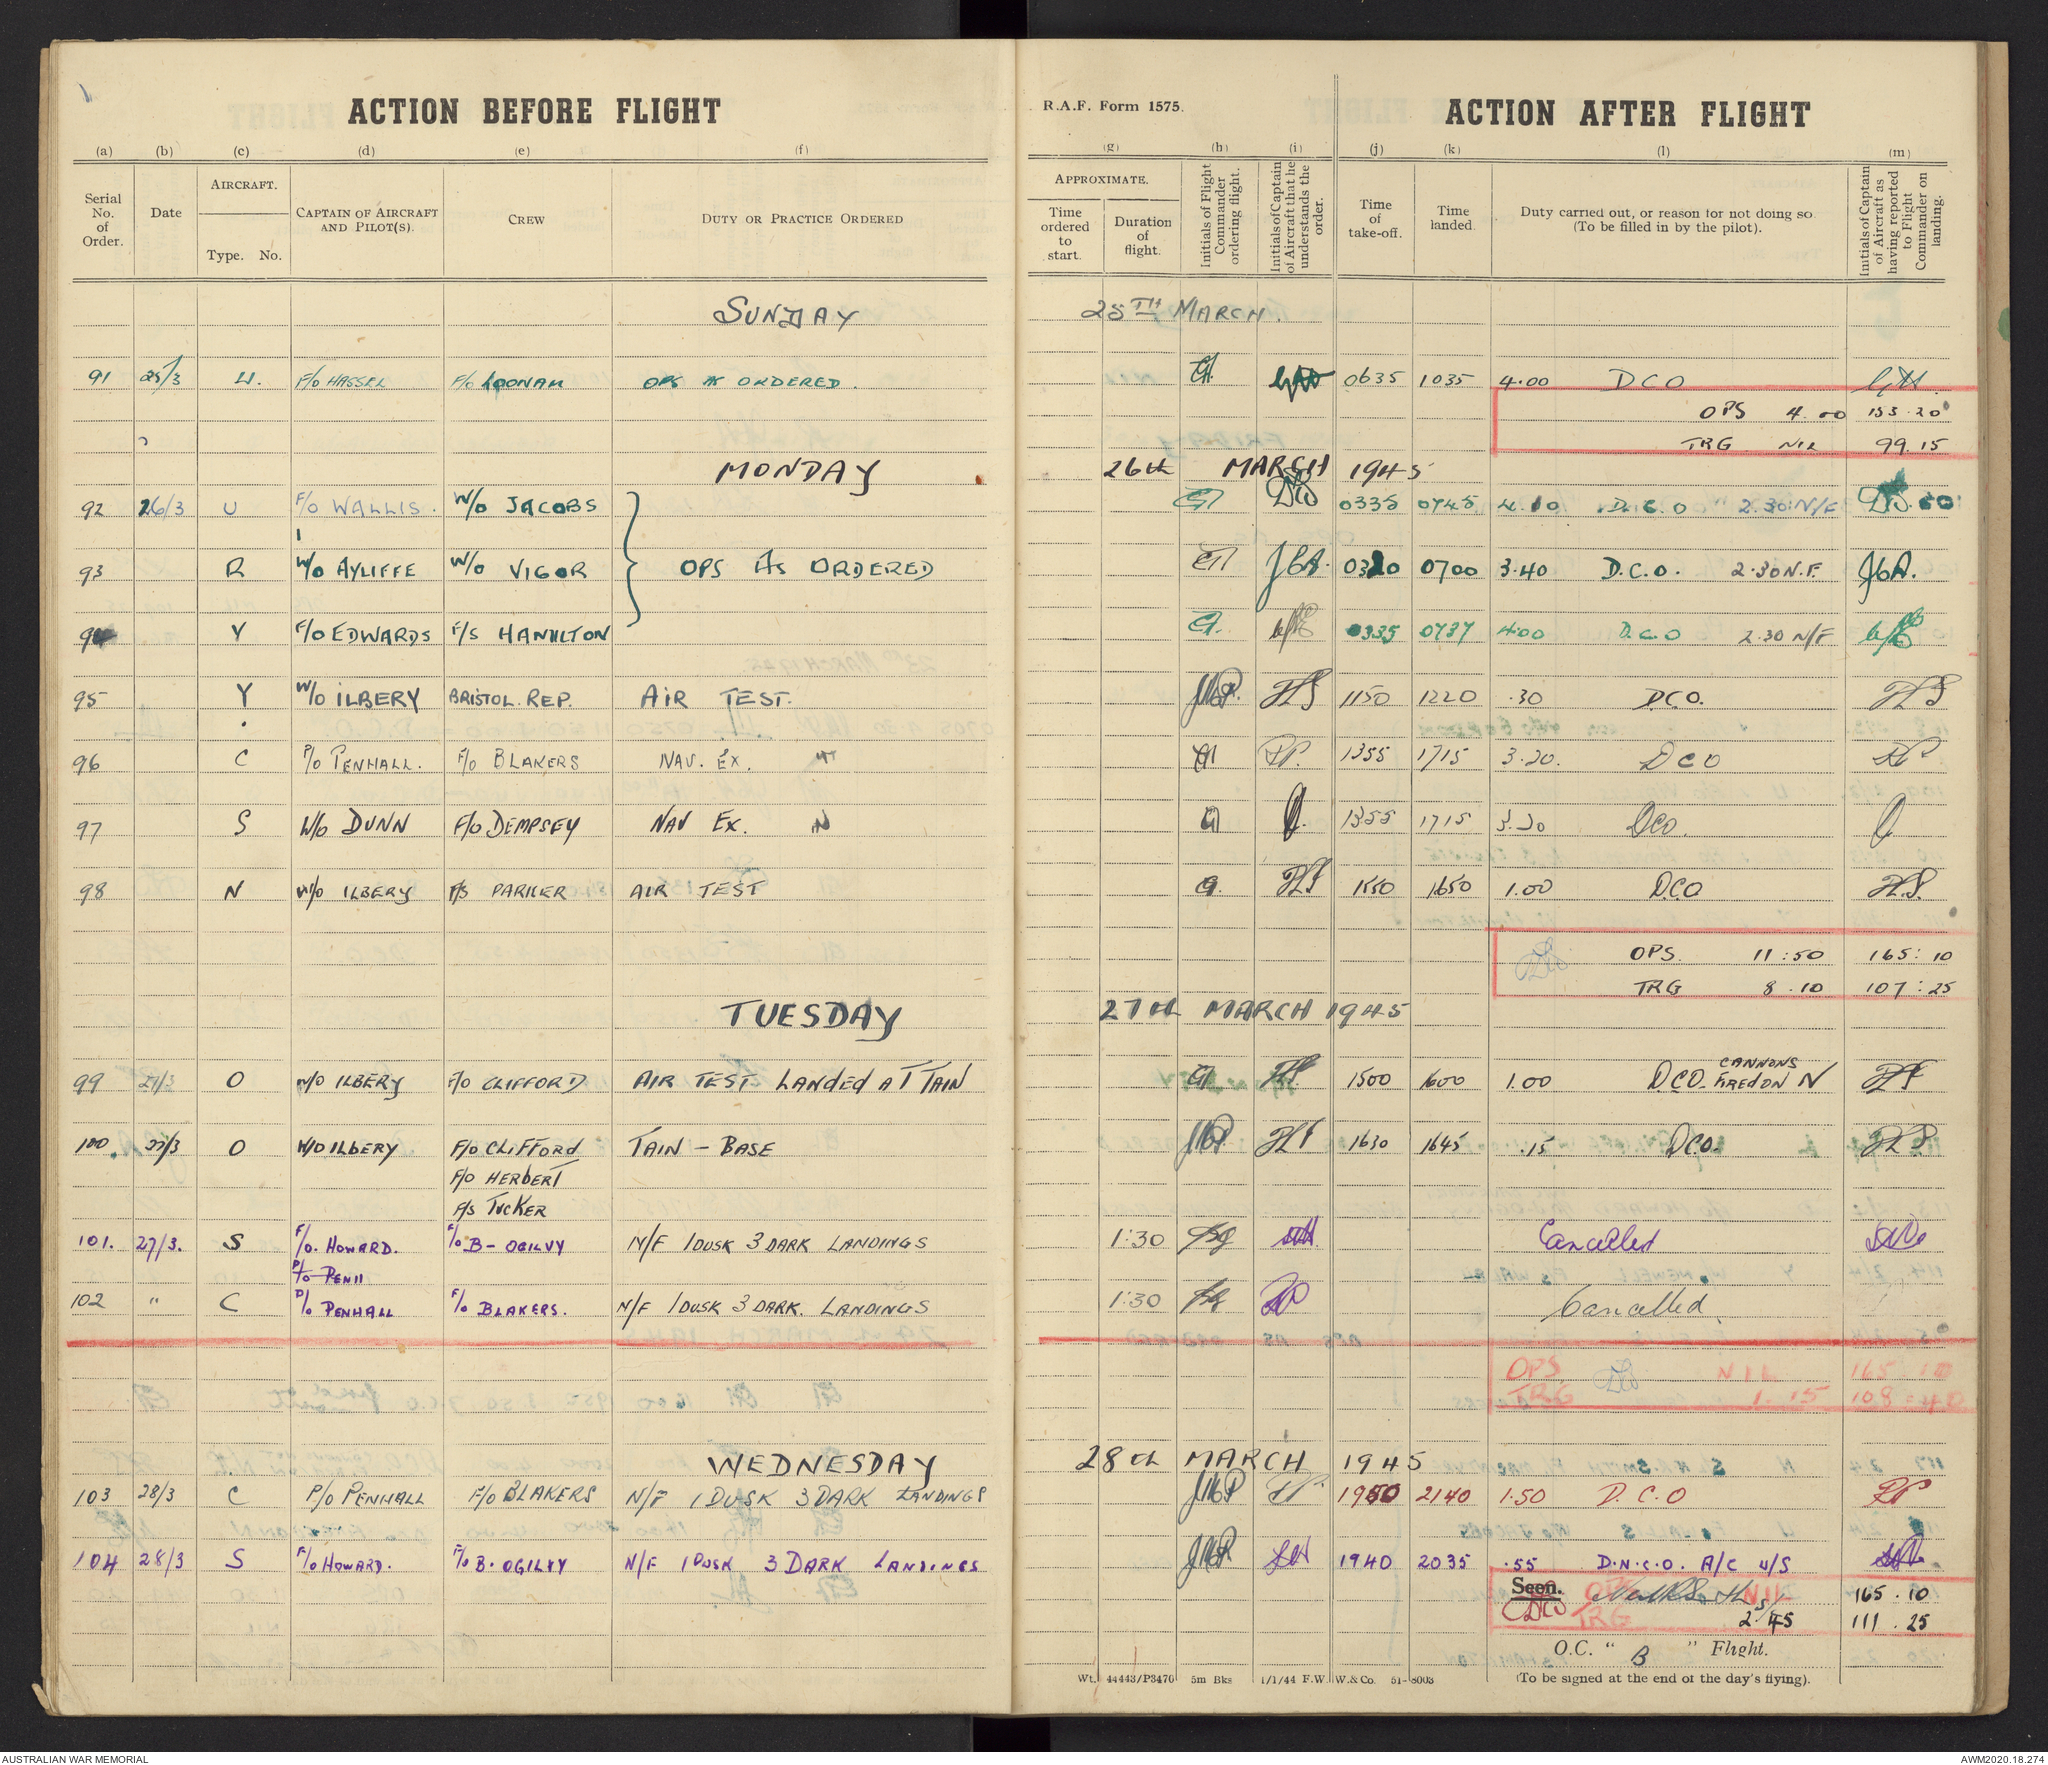 ACTION BEFORE FLIGHT
R.A.F. Form 1575.
ACTION AFTER FLIGHT
(a) (b) (c) (d) (e) (f) (g) (h) (i) (j) (k) (l) (m)
Serial No. of Order.
Date
AIRCRAFT.
Type. No.
CAPTAIN OF AIRCRAFT AND PILOT(S).
CREW
DUTY OR PRACTICE ORDERED
APPROXIMATE.
Time ordered to start.
Duration of flight.
Initials of Flight Commander ordering flight.
Initials of Captain of Aircraft that he understands the order.
Time of take-off.
Time landed.
Duty carried out, or reason for not doing so. (To be filled in by the pilot).
Initials of Captain of Aircraft as having reported to Flight Commander on landing.
SUNDAY 25TH MARCH.
91 25/3 U. F/O HASSEL F/O LOONAM OPS AS ORDERED. 0635 1035 4.00 DCO
OPS 4.00 153.20
TRG NIL 99.15
MONDAY 26th MARCH 1945
92 26/3 U F/O WALLIS. W/O JACOBS 0335 0745 4.10 D.C.O 2.30 N/F
93 R W/O AYLIFFE W/O VIGOR OPS AS ORDERED JGA. 0320 0700 3.40 D.C.O. 2.30 N.F. JGA.
94 Y F/O EDWARDS F/S HAMILTON 0335 0737 4.00 D.C.O 2.30 N/F
95 Y W/O ILBERY BRISTOL. REP. AIR TEST. 1150 1220 .30 D.C.O.
96 C P/O PENHALL. F/O BLAKERS NAV. EX. 1355 1715 3.20. DCO
97 S W/O DUNN F/O DEMPSEY NAV EX. 1355 1715 3.20 DCO.
98 N W/O ILBERY F/S PARKER AIR TEST 1550 1650 1.00 DCO
OPS. 11:50 165:10
TRG 8.10 107:25
TUESDAY 27th MARCH 1945
99 27/3 O W/O ILBERY F/O CLIFFORD AIR TEST LANDED AT TAIN 1500 1600 1.00 DCO. CANNONS FIRED ON N
100 27/3 O W/O ILBERY F/O CLIFFORD TAIN - BASE 1630 1645 .15 DCO.
F/O HERBERT
F/S TUCKER
101. 27/3. S F/O. HOWARD. F/O B-OGILVY N/F 1 DUSK 3 DARK LANDINGS 1:30 Cancelled
P/O PENH
102 " C P/O PENHALL F/O BLAKERS. N/F 1 DUSK 3 DARK. LANDINGS 1:30 Cancelled
OPS NIL 165:10
TRG 1.15 108:40
WEDNESDAY 28th MARCH 1945
103 28/3 C P/O PENHALL F/O BLAKERS N/F 1 DUSK 3 DARK LANDINGS 1950 2140 1.50 D.C.O
104 28/3 S F/O HOWARD. F/O B. OGILVY N/F 1 DUSK 3 DARK LANDINGS 1940 2035 .55 D.N.C.O. A/C U/S
Seen. OPS NIL 165.10
TRG 2.45 111.25
O.C. " B " Flight.
Wt. 44443/P3476 5m Bks 1/1/44 F.W. W.& Co. 51-8003
(To be signed at the end of the day's flying).
AUSTRALIAN WAR MEMORIAL
AWM2020.18.274